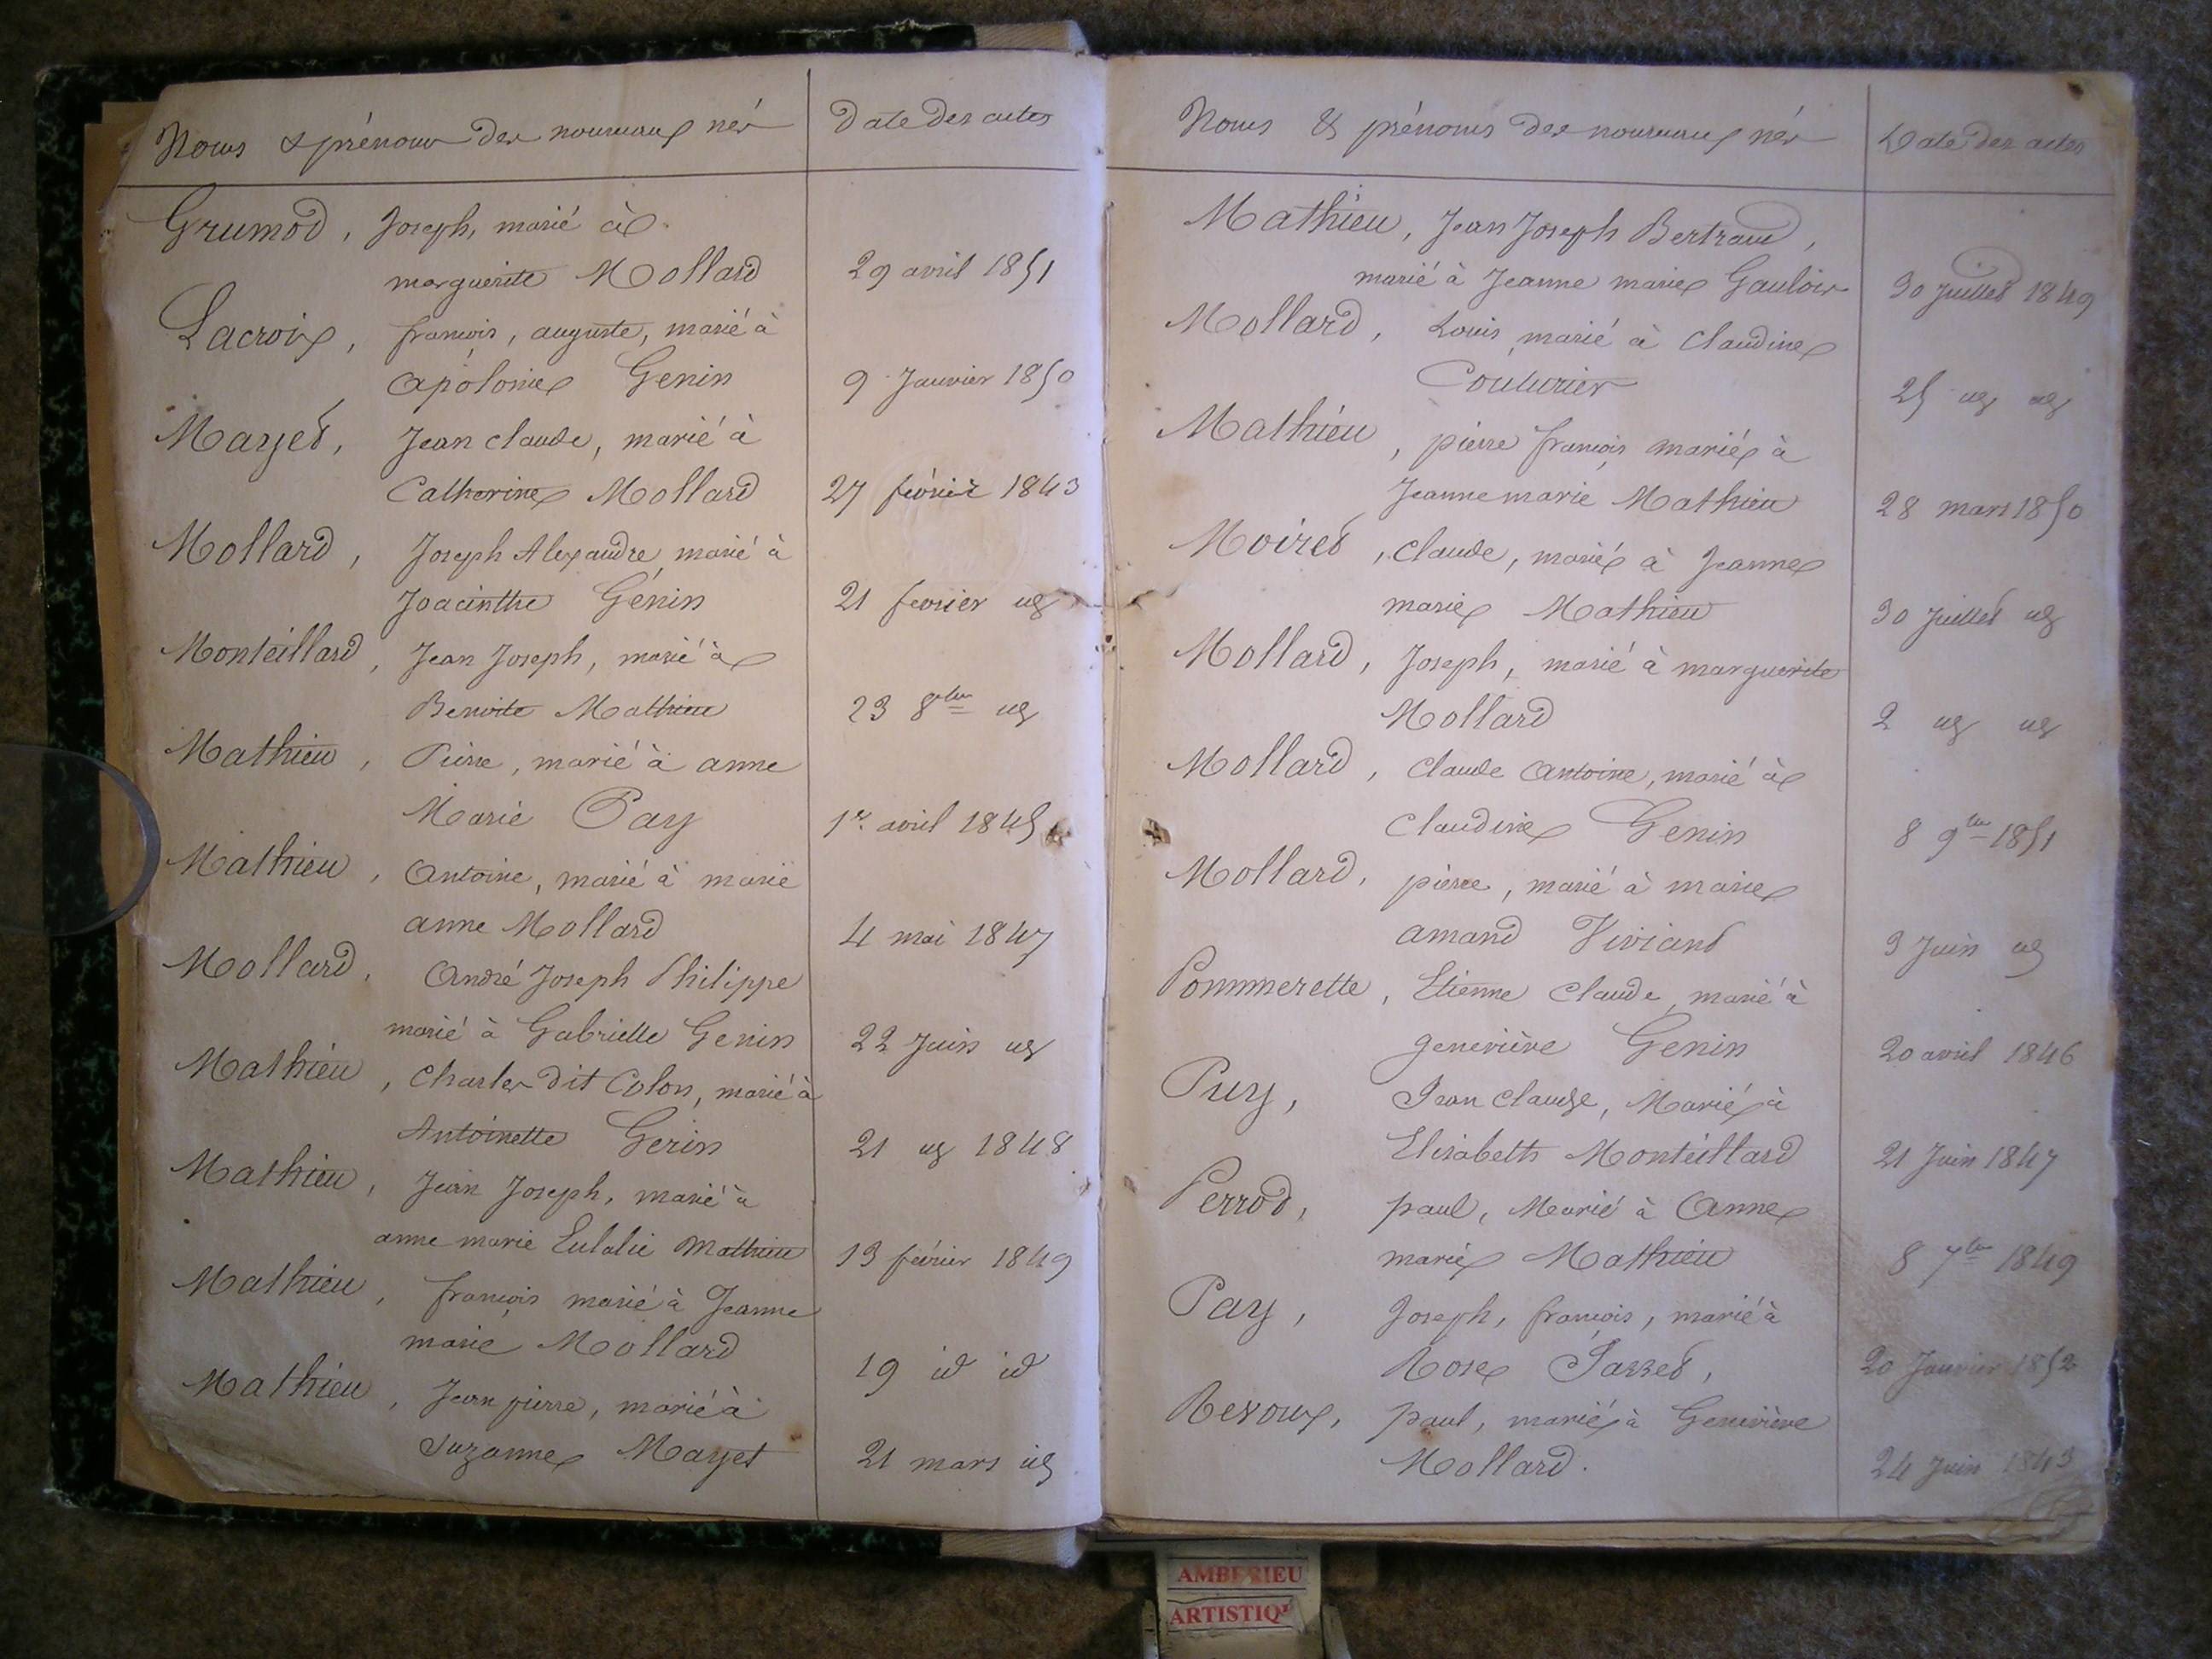 Noms & prénoms des nouveaux nés
Date des actes
Grumod, Joseph, marié à
marguerite Mollard
29 avril 1851
Lacroix, françois, auguste, marié à
apolonie Genin
9 Janvier 1850
Mayet, Jean claude, marié à
Catherine Mollard
27 février 1843
Mollard, Joseph Alexandre, marié à
Joacinthe Génin
21 fevrier id
Monteillard, Jean Joseph, marié à
Benoite Mathieu
23 8bre id
Mathieu, Pierre, marié à anne
Marie Pay
1er avril 1845
Mathieu, Antoine, marié à marie
anne Mollard
4 mai 1847
Mollard, André Joseph Philippe
marié à Gabrielle Genin
22 Juin id
Mathieu, Charles dit Colon, marié à
Antoinette Genin
21 id 1848
Mathieu, Jean Joseph, marié à
anne marie Eulalie Mathieu
13 février 1849
Mathieu, françois marié à Jeanne
marie Mollard
19 id id
Mathieu, Jean pierre, marié à
Suzanne Mayet
21 mars id
Noms & prénoms des nouveaux nés
Date des actes
Mathieu, Jean Joseph Bertrand,
marié à Jeanne marie Gaulois
30 Juillet 1849
Mollard, Louis, marié à Claudine
Couturier
25 id id
Mathieu, pierre françois marié à
Jeanne marie Mathieu
28 mars 1850
Moiret, claude, marié à Jeanne
marie Mathieu
30 Juillet id
Mollard, Joseph, marié à marguerite
Mollard
2 id id
Mollard, Claude Antoine, marié à
Claudine Genin
8 9bre 1851
Mollard, pierre, marié à marie
amand Viviand
3 Juin id
Pommerette, Etienne Claude, marié à
geneviève Genin
20 avril 1846
Puy, Jean Claude, Marié à
Elisabeth Monteillard
21 Juin 1847
Perrod, paul, Marié à Anne
marie Mathieu
8 7bre 1849
Pay, Joseph, françois, marié à
Rose Jasset,
20 Janvier 1852
Revoux, paul, marié à Geneviève
Mollard.
24 Juin 1843
AMBERIEU
ARTISTIQ